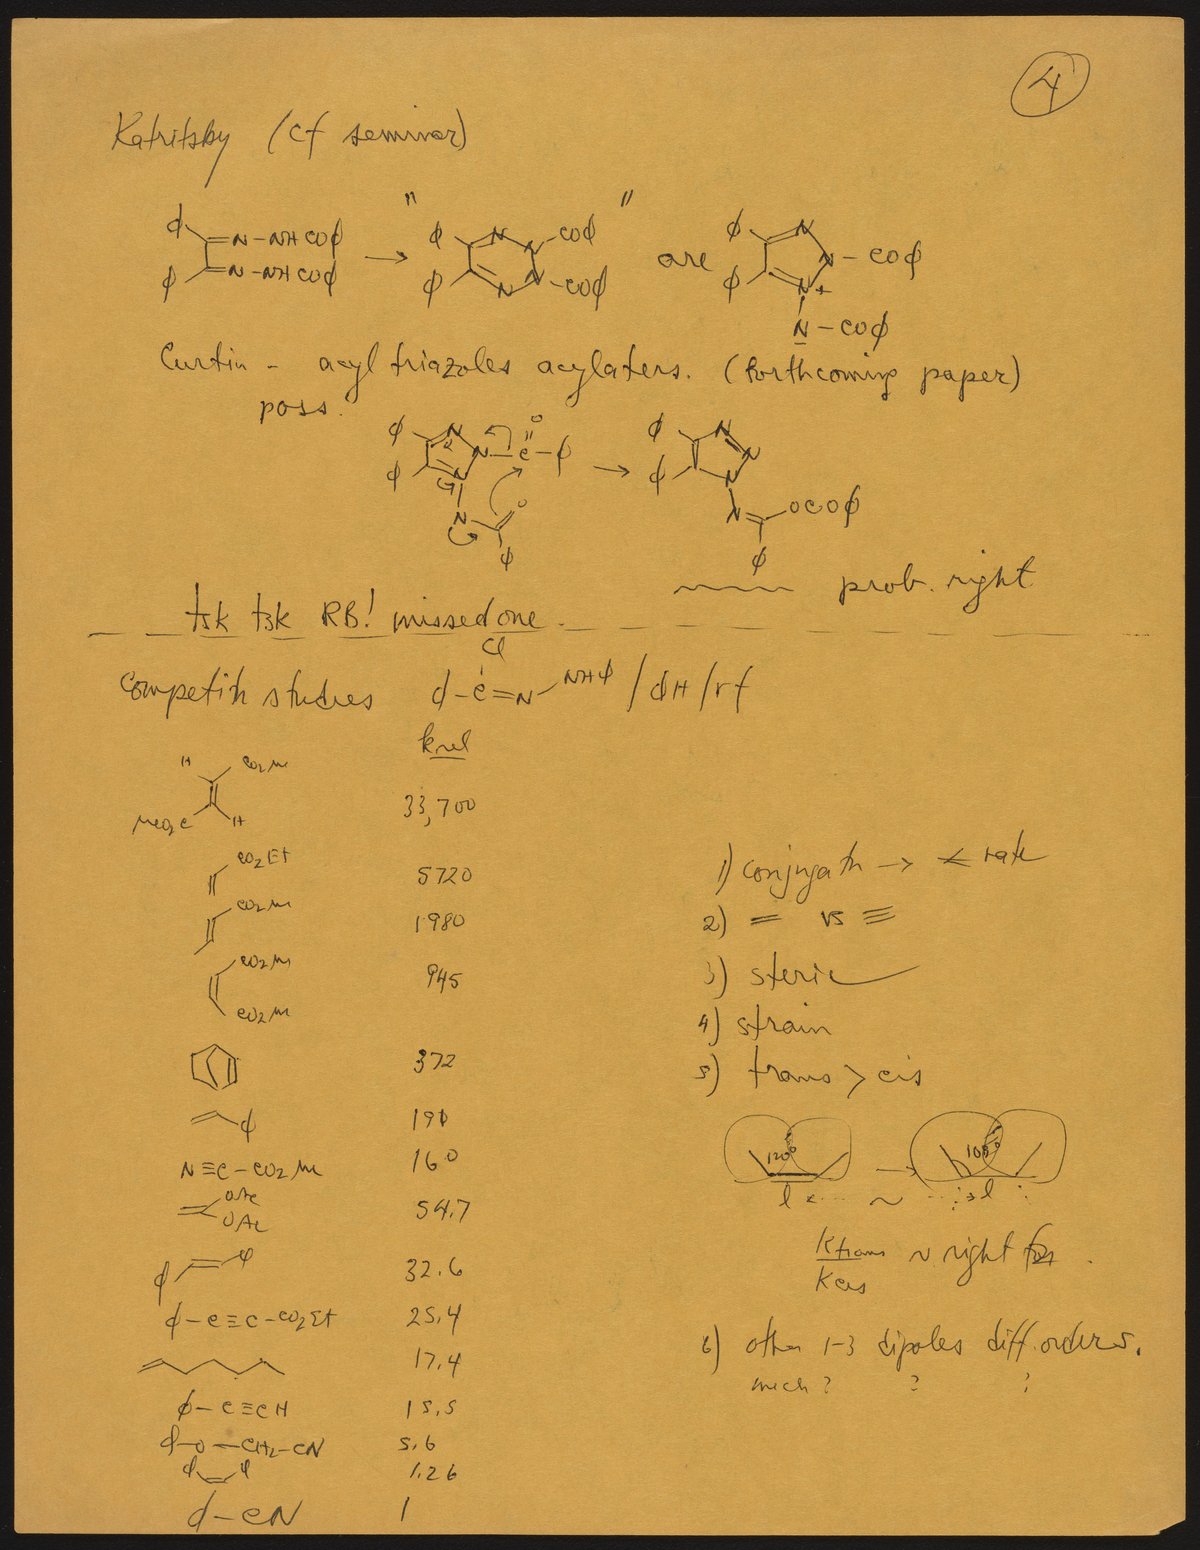 4
Katritsky (cf seminar)
ϕ =N-NH COϕ → " ϕ N N-COϕ " are ϕ N N-COϕ
ϕ =N-NH COϕ ϕ N N-COϕ ϕ N+
N-COϕ
Curtin - acyl triazoles acylaters. (forthcoming paper)
poss.
ϕ N N-C-ϕ O → ϕ N N
ϕ N ϕ N
N O ϕ N OCOϕ ϕ
prob. right
tsk tsk RB! missed one.
Competitn studies ϕ-C=N-NHϕ / ϕH / rf
Cl
krel
H CO2Me MeO2C H 33,700
CO2Et 5720
CO2Me 1980
CO2Me CO2Me 945
372
ϕ 190
N≡C-CO2Me 160
OAc OAc 54.7
ϕ ϕ 32.6
ϕ-C≡C-CO2Et 25.4
17.4
ϕ-C≡CH 15.5
ϕ-O-CH2-CN 5.6
ϕ ϕ 1.26
ϕ-CN 1
1) conjugatn → < rate
2) = vs ≡
3) steric
4) strain
5) trans > cis
120° → 108°
l ~ l
Ktrans/Kcis ~ right for.
6) other 1-3 dipoles diff. orders.
mech? ? ?